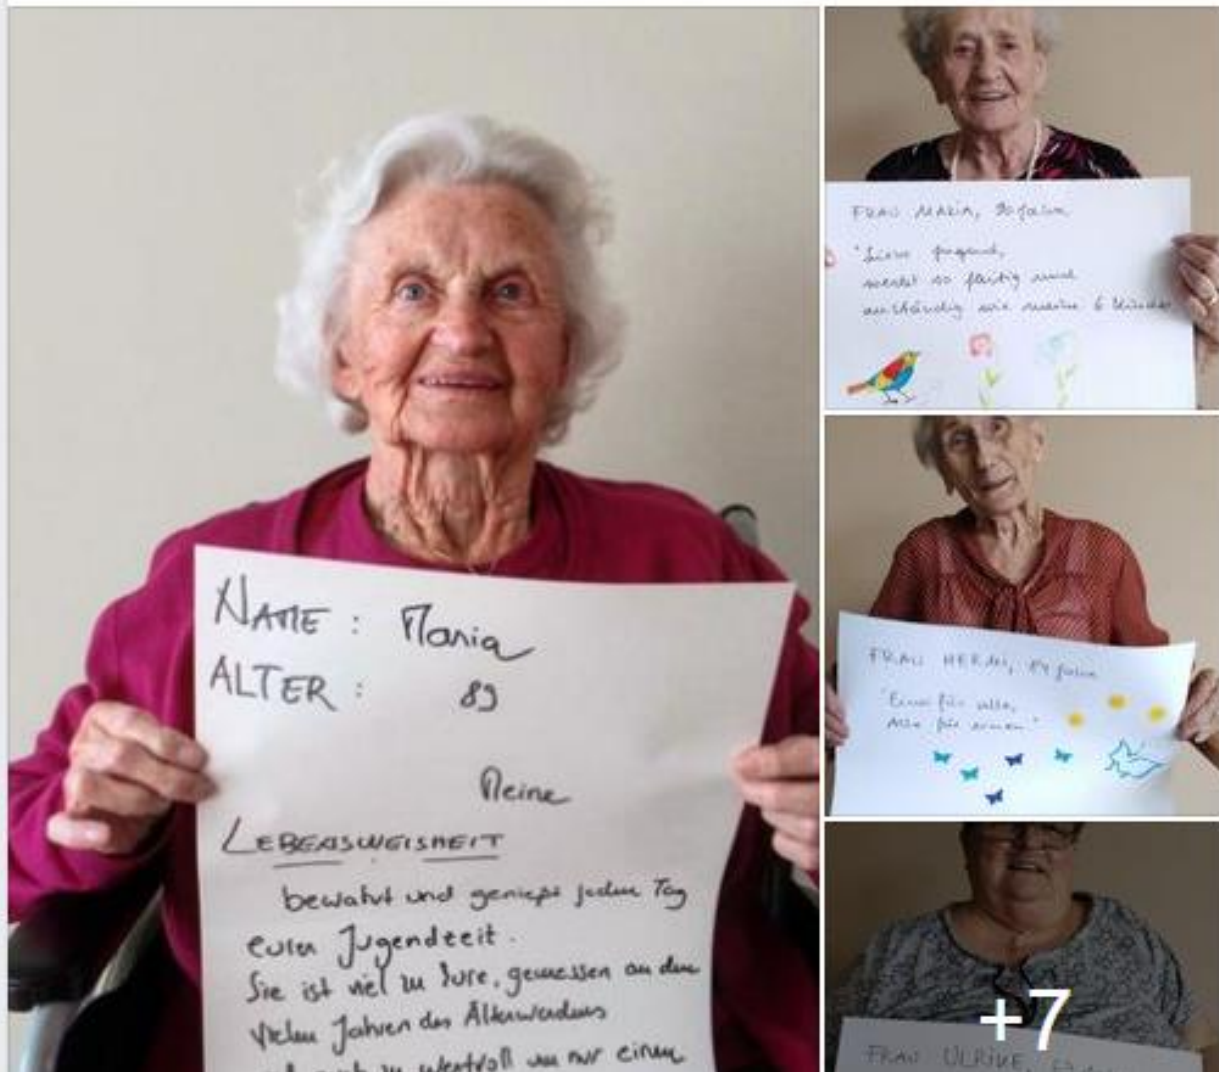 NAME : Maria
ALTER : 89
Meine
LEBENSWEISHEIT
bewahrt und genießt jeden Tag
eurer Jugendzeit.
Sie ist viel zu kurz, gemessen an den
vielen Jahren des Älterwerdens
zu wertvoll um nur einen
FRAU MARIA, 90 Jahre
"Liebe Jugend,
werdet so fleißig und
anständig wie meine 6 Kinder
FRAU HERMI, 84 Jahre
"Einer für alle,
Alle für einen"
+7
FRAU ULRIKE,